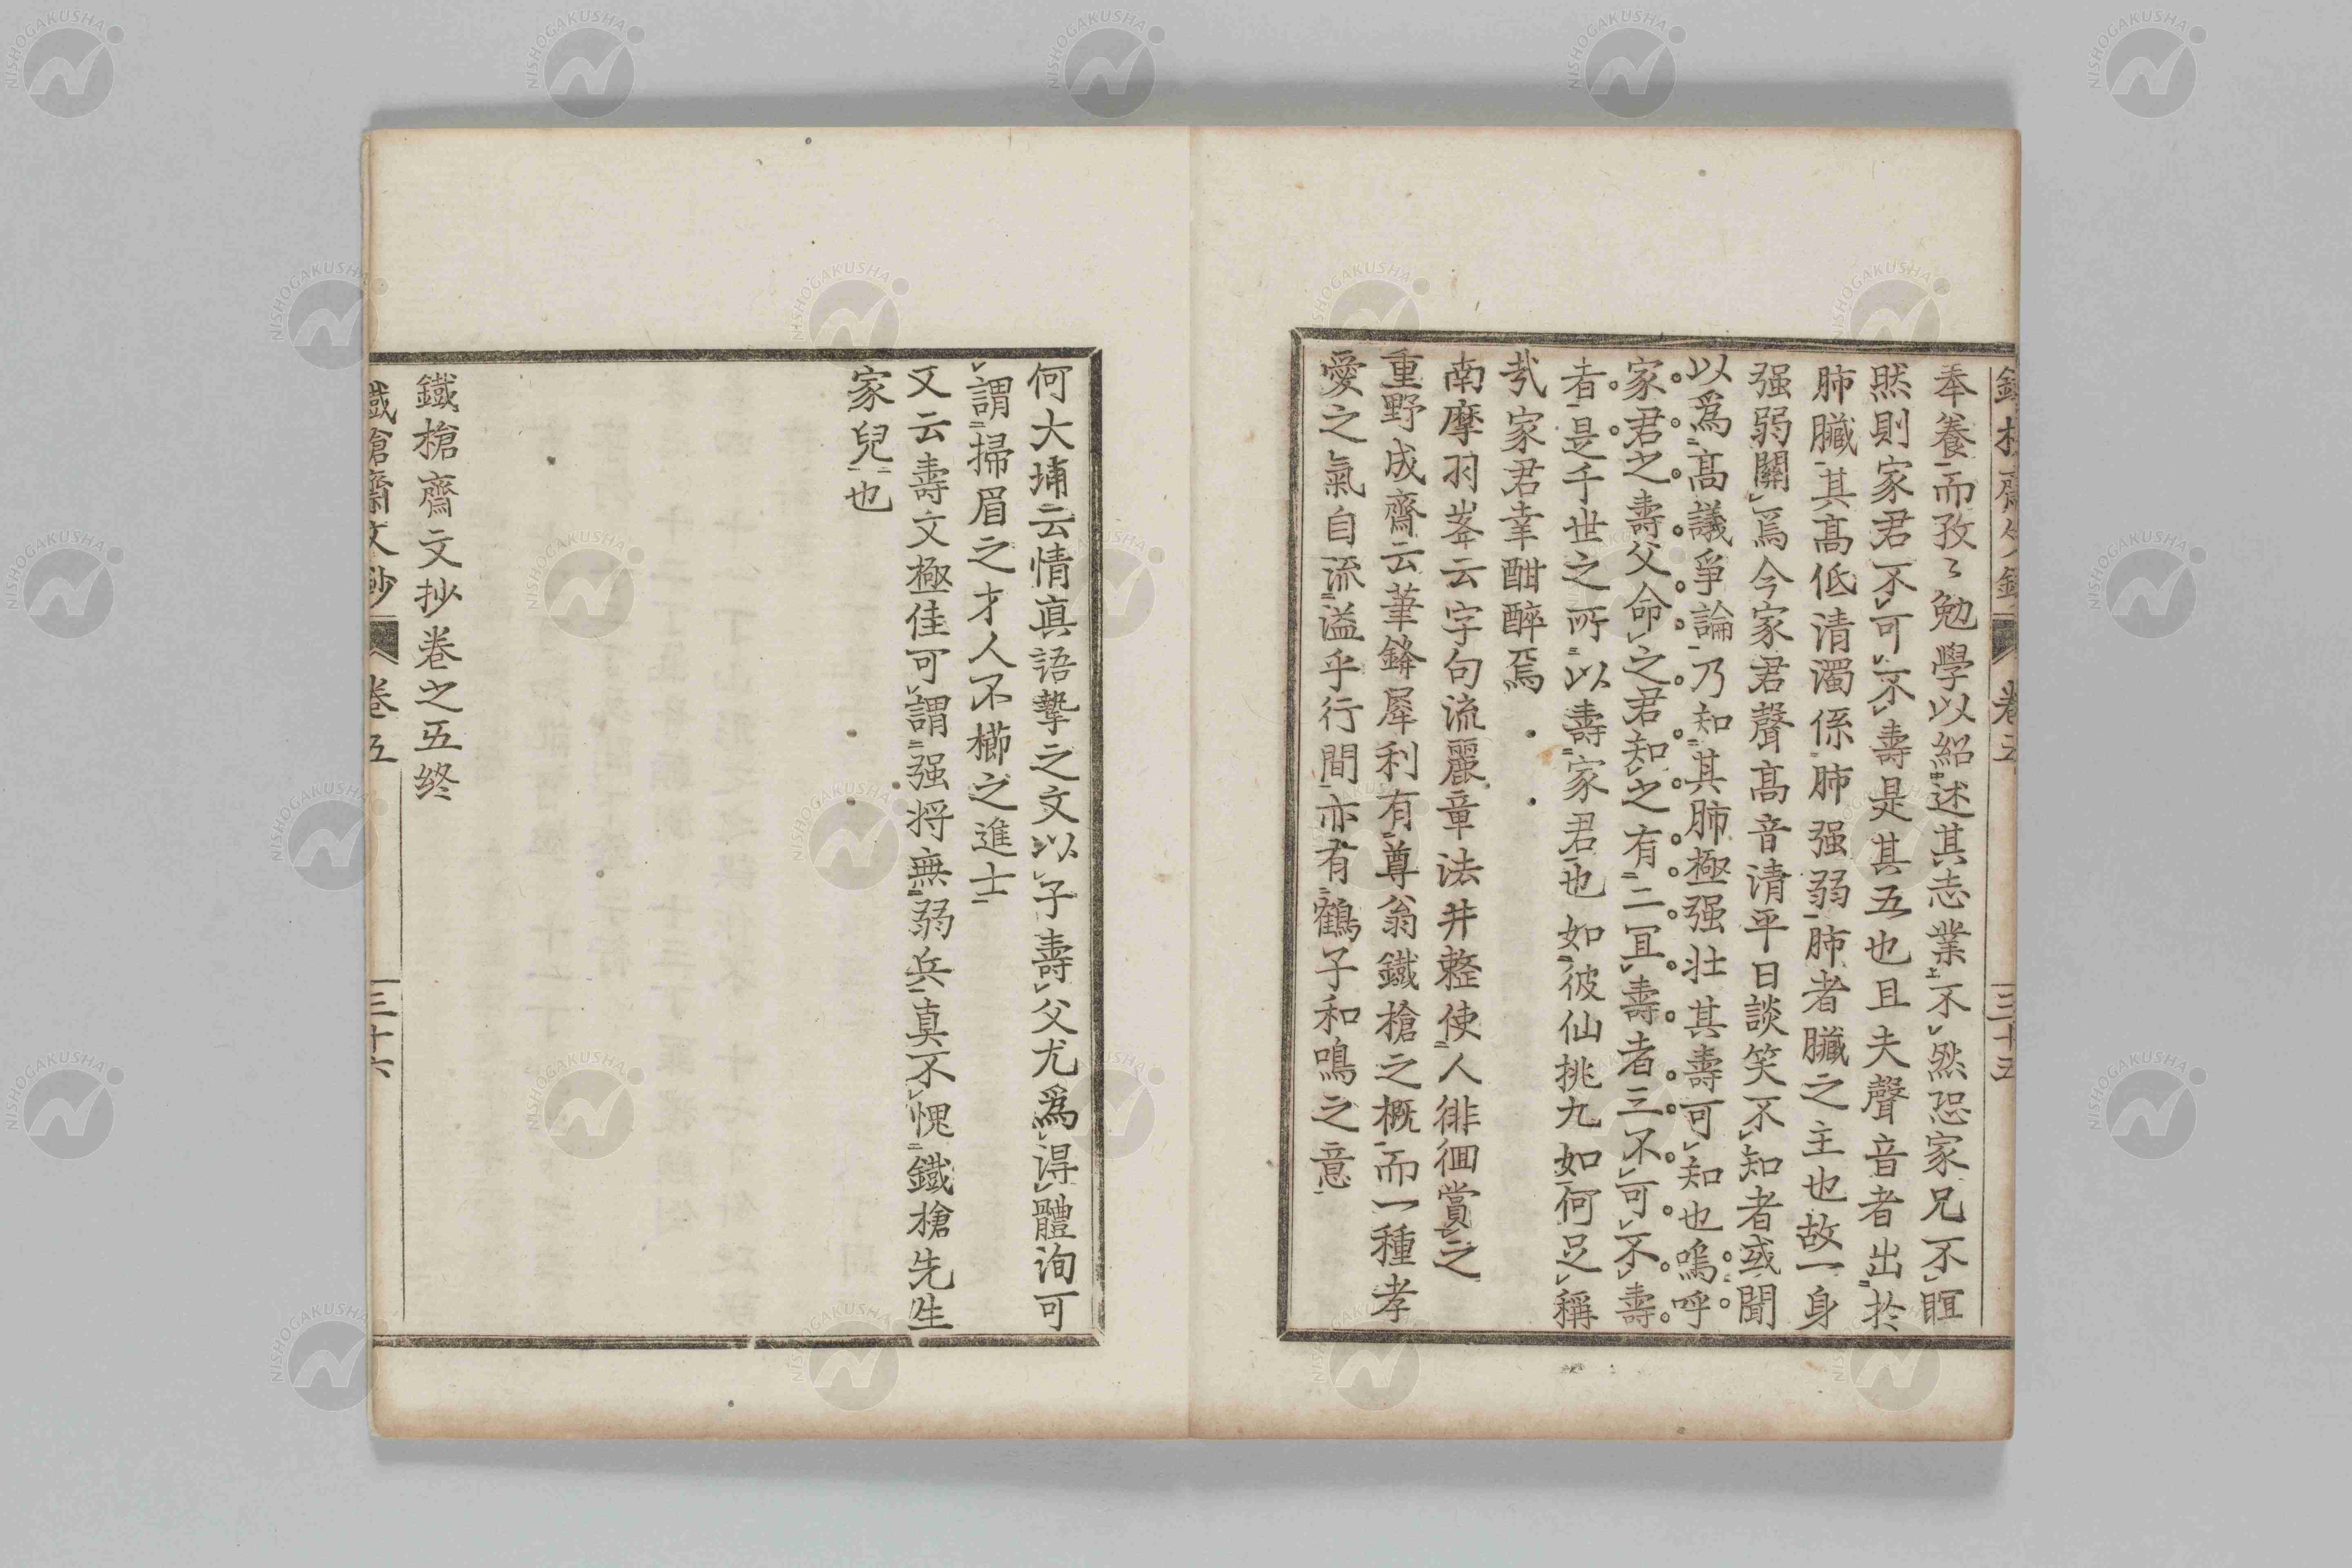 奉養而孜〻勉學以紹述其志業不然恐家兄不暄
然則家君不可不壽是其五也且夫聲音者出於
肺臟其高低清濁係肺强弱肺者臟之主也故一身
强弱關焉今家君聲高音清平日談笑不知者或聞
以爲高議爭論乃知其肺極强壯其壽可知也嗚呼
家君之壽父命之君知之有二冝壽者三不可不壽
者是千世之所以壽家君也如彼仙挑九如何足稱
㢤家君幸酣醉焉
南摩羽峯云字句流麗章法井整使人徘徊賞之
重野成齋云筆鋒犀利有尊翁鐵槍之概而一種孝
愛之氣自流溢乎行間亦有鶴子和鳴之意
何大埔云情眞語摯之文以子壽父尤爲得體洵可
謂掃眉之才人不櫛之進士
又云壽文極佳可謂强將無弱兵真不愧鐵槍先生
家兒也
鐵槍齋文抄卷之五終
鐵槍齋文鈔 卷五 三十六
NISHOGAKUSHA